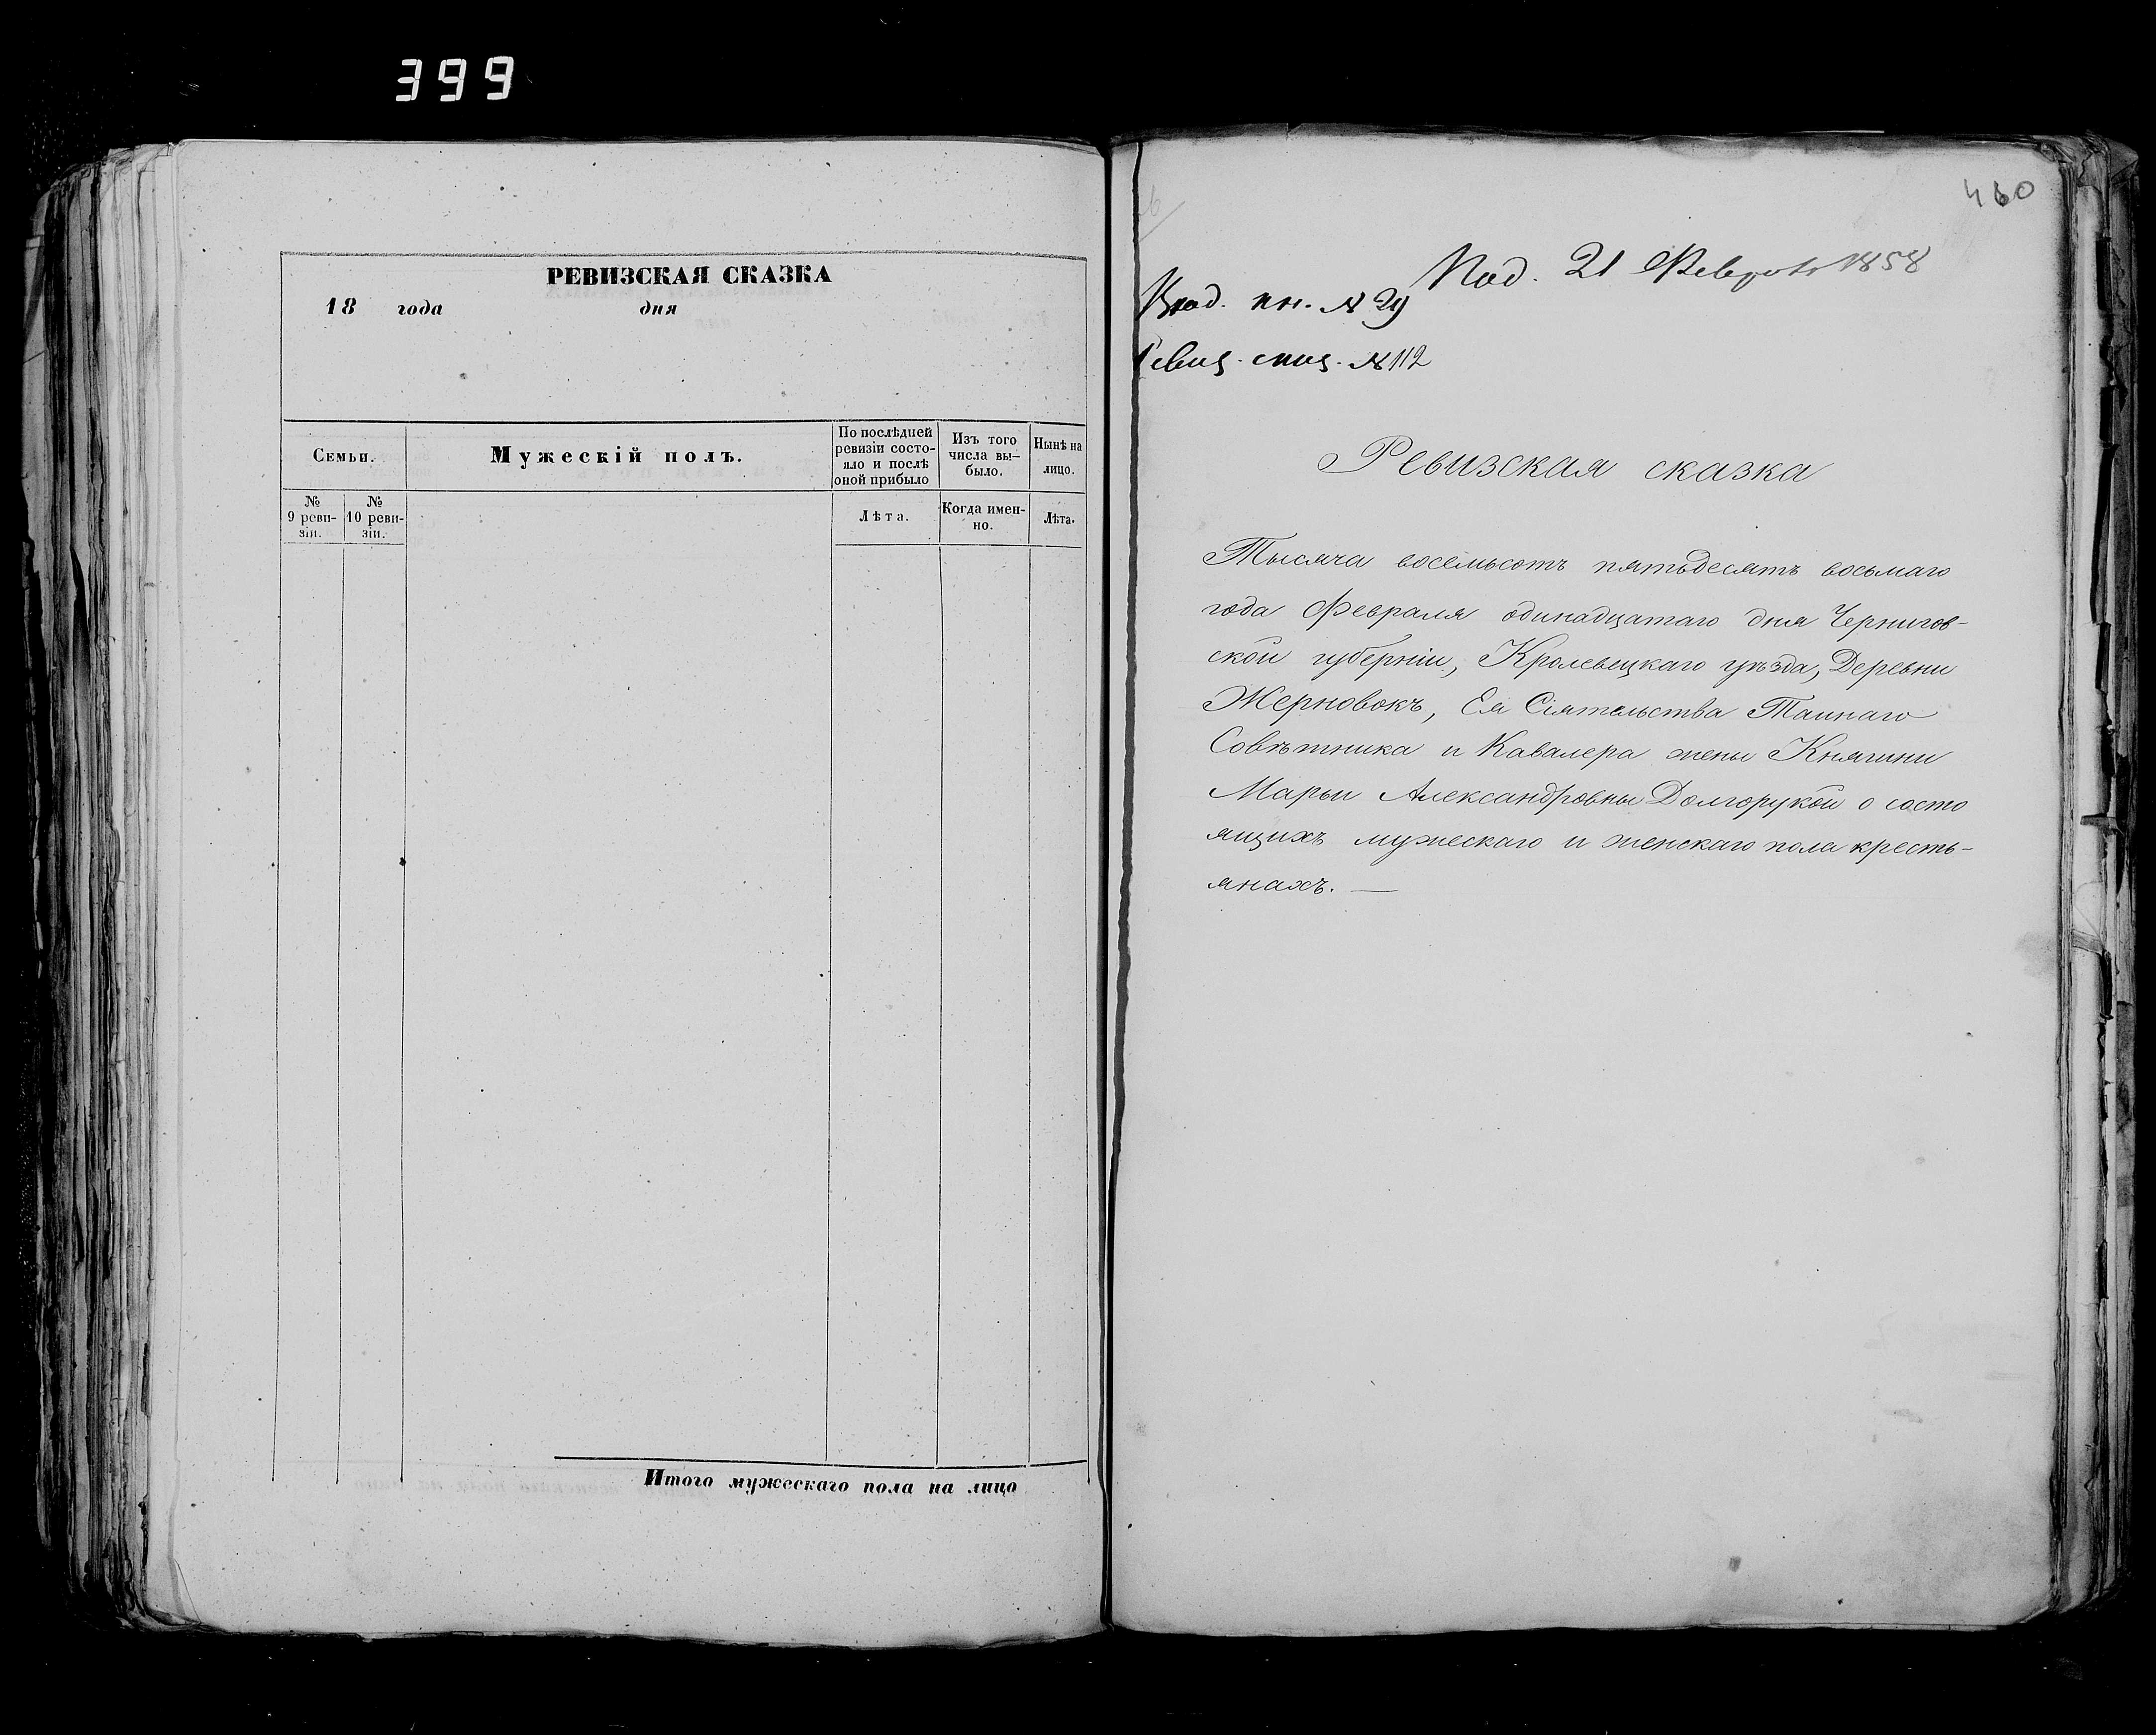 399
РЕВИЗСКАЯ СКАЗКА
18 года дня
Семьи.
Мужескій полъ.
По послѣдней
ревизіи состо-
яло и послѣ
оной прибыло
Изъ того
числа вы-
было.
Нынѣ на
лицо.
№
9 реви-
зіи.
№
10 реви-
зіи.
Лѣта.
Когда имен-
но.
Лѣта.
Итого мужескаго пола на лицо
460
Под. 21 Февраля 1858
кн. № 29
Ревиз. № 112
Ревизская сказка
Тысяча восемьсотъ пятьдесятъ восьмаго
года Февраля одинадцатаго дня Чернигов-
ской губерніи, Кролевецкаго уѣзда, Деревни
Жерновокъ, Ея Сіятельства Таинаго
Совѣтника и Кавалера жены Княгини
Марьи Александровны Долгорукой о состо
ящихъ мужескаго и женскаго пола кресть-
янахъ. —